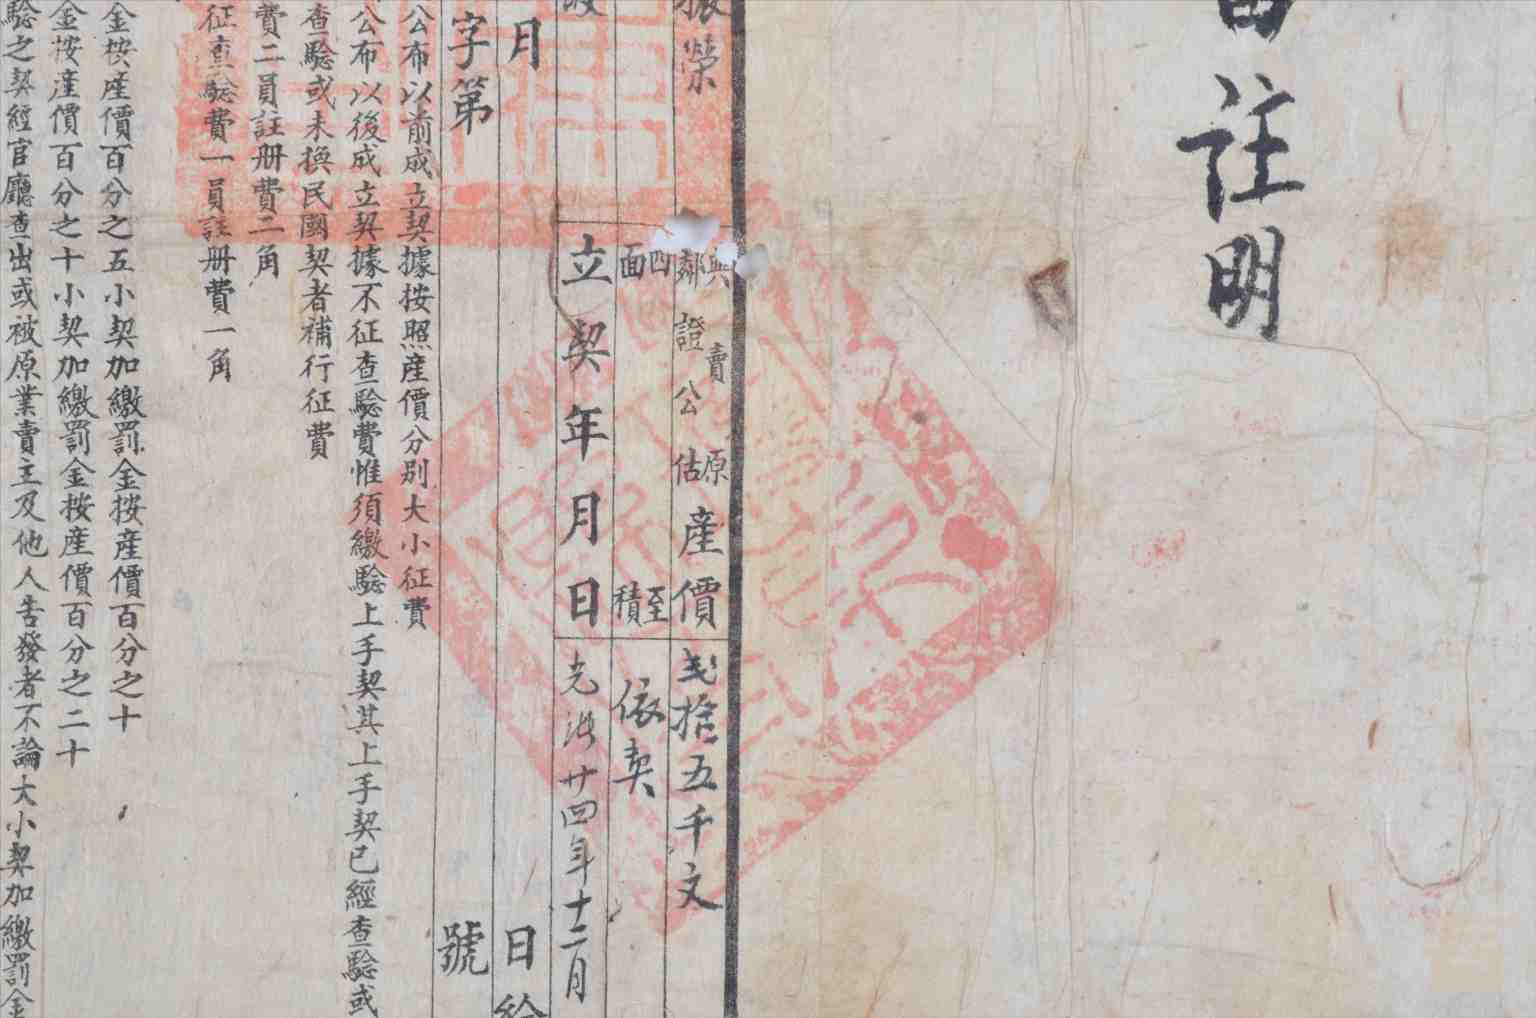 註明
振榮
與賣原
鄰證公估產價 弍拾五千文
四至
面積 依契
立契年月日 光緒廿四年十二月
月 日給
字第 號
公布以前成立契據按照産價分别大小征費
公布以後成立契據不征查驗費惟須繳驗上手契其上手契已經查驗或
查驗或未換民國契者補行征費
費二員註册費二角
征查驗費一員註册費一角
金按産價百分之五小契加繳罰金按産價百分之十
金按産價百分之十小契加繳罰金按産價百分之二十
驗之契經官廳查出或被原業賣主及他人告發者不論大小契加繳罰金